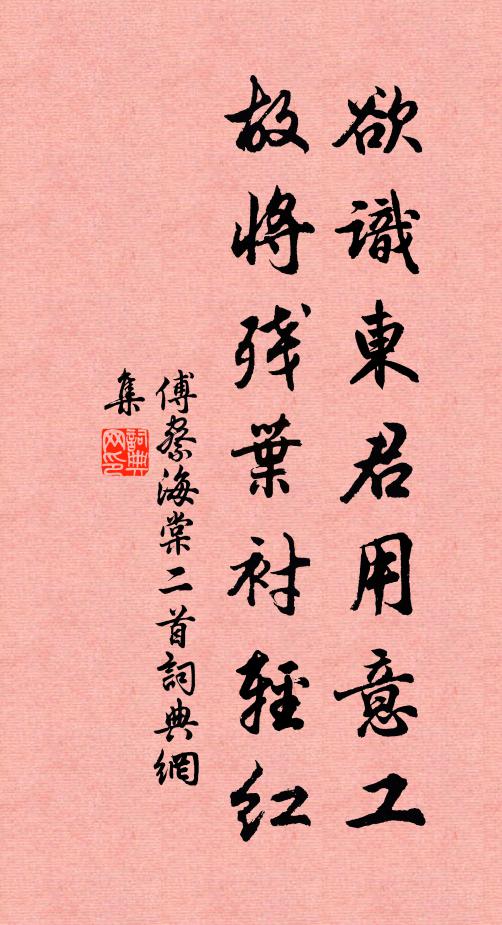 欲識東君用意工
故將残葉衬輕红
傅察海棠二首詞典網
集
詞典
网印